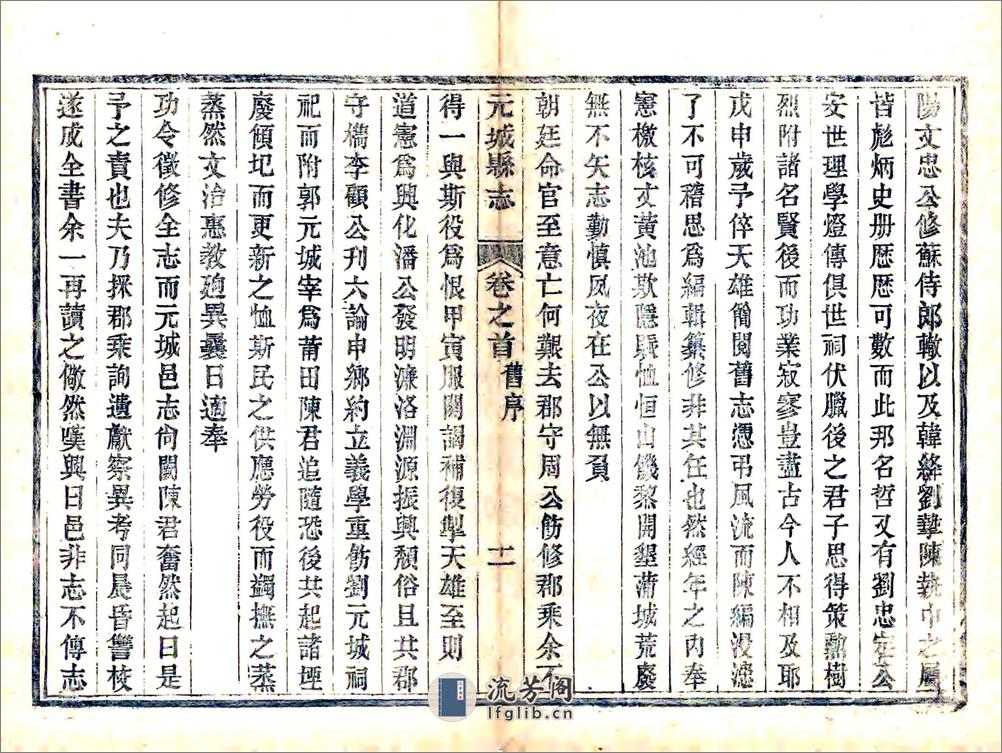 陽文忠公修蘇侍郎轍以及韓絳劉摯陳執中之屬
皆彪炳史册歷歷可數而此邦名哲又有劉忠定公
安世理學燈傳俱世祠伏臘後之君子思得策勳樹
烈附諸名賢後而功業寂寥豈盡古今人不相及耶
戊申歲予倅天雄簡閱舊志慿弔風流而陳編漫漶
了不可稽思爲編輯纂修非其任也然經年之内奉
憲檄核丈黃池欺隱賑恤恒山饑黎開墾蒲城荒廢
無不矢志勤慎夙夜在公以無負
朝廷命官至意亡何艱去郡守周公飭修郡乘余不
元城縣志 卷之首 舊序 十一
得一與斯役爲恨甲寅服闋謁補復掣天雄至則
道憲爲興化潘公發明濂洛淵源振興頹俗且共郡
守檇李顧公刊六論申鄉約立義學重飭劉元城祠
祀而附郭元城宰爲莆田陳君追隨恐後共起諸堙
廢傾圮而更新之恤斯民之供應勞役而蠲撫之蒸
蒸然文治惠教廻異曩日適奉
功令徵修全志而元城邑志尙闕陳君奮然起曰是
予之責也夫乃採郡乘詢遺獻察異考同晨昏讐校
遂成全書余一再讀之儆然嘆興曰邑非志不傳志
流芳閣
lfglib.cn